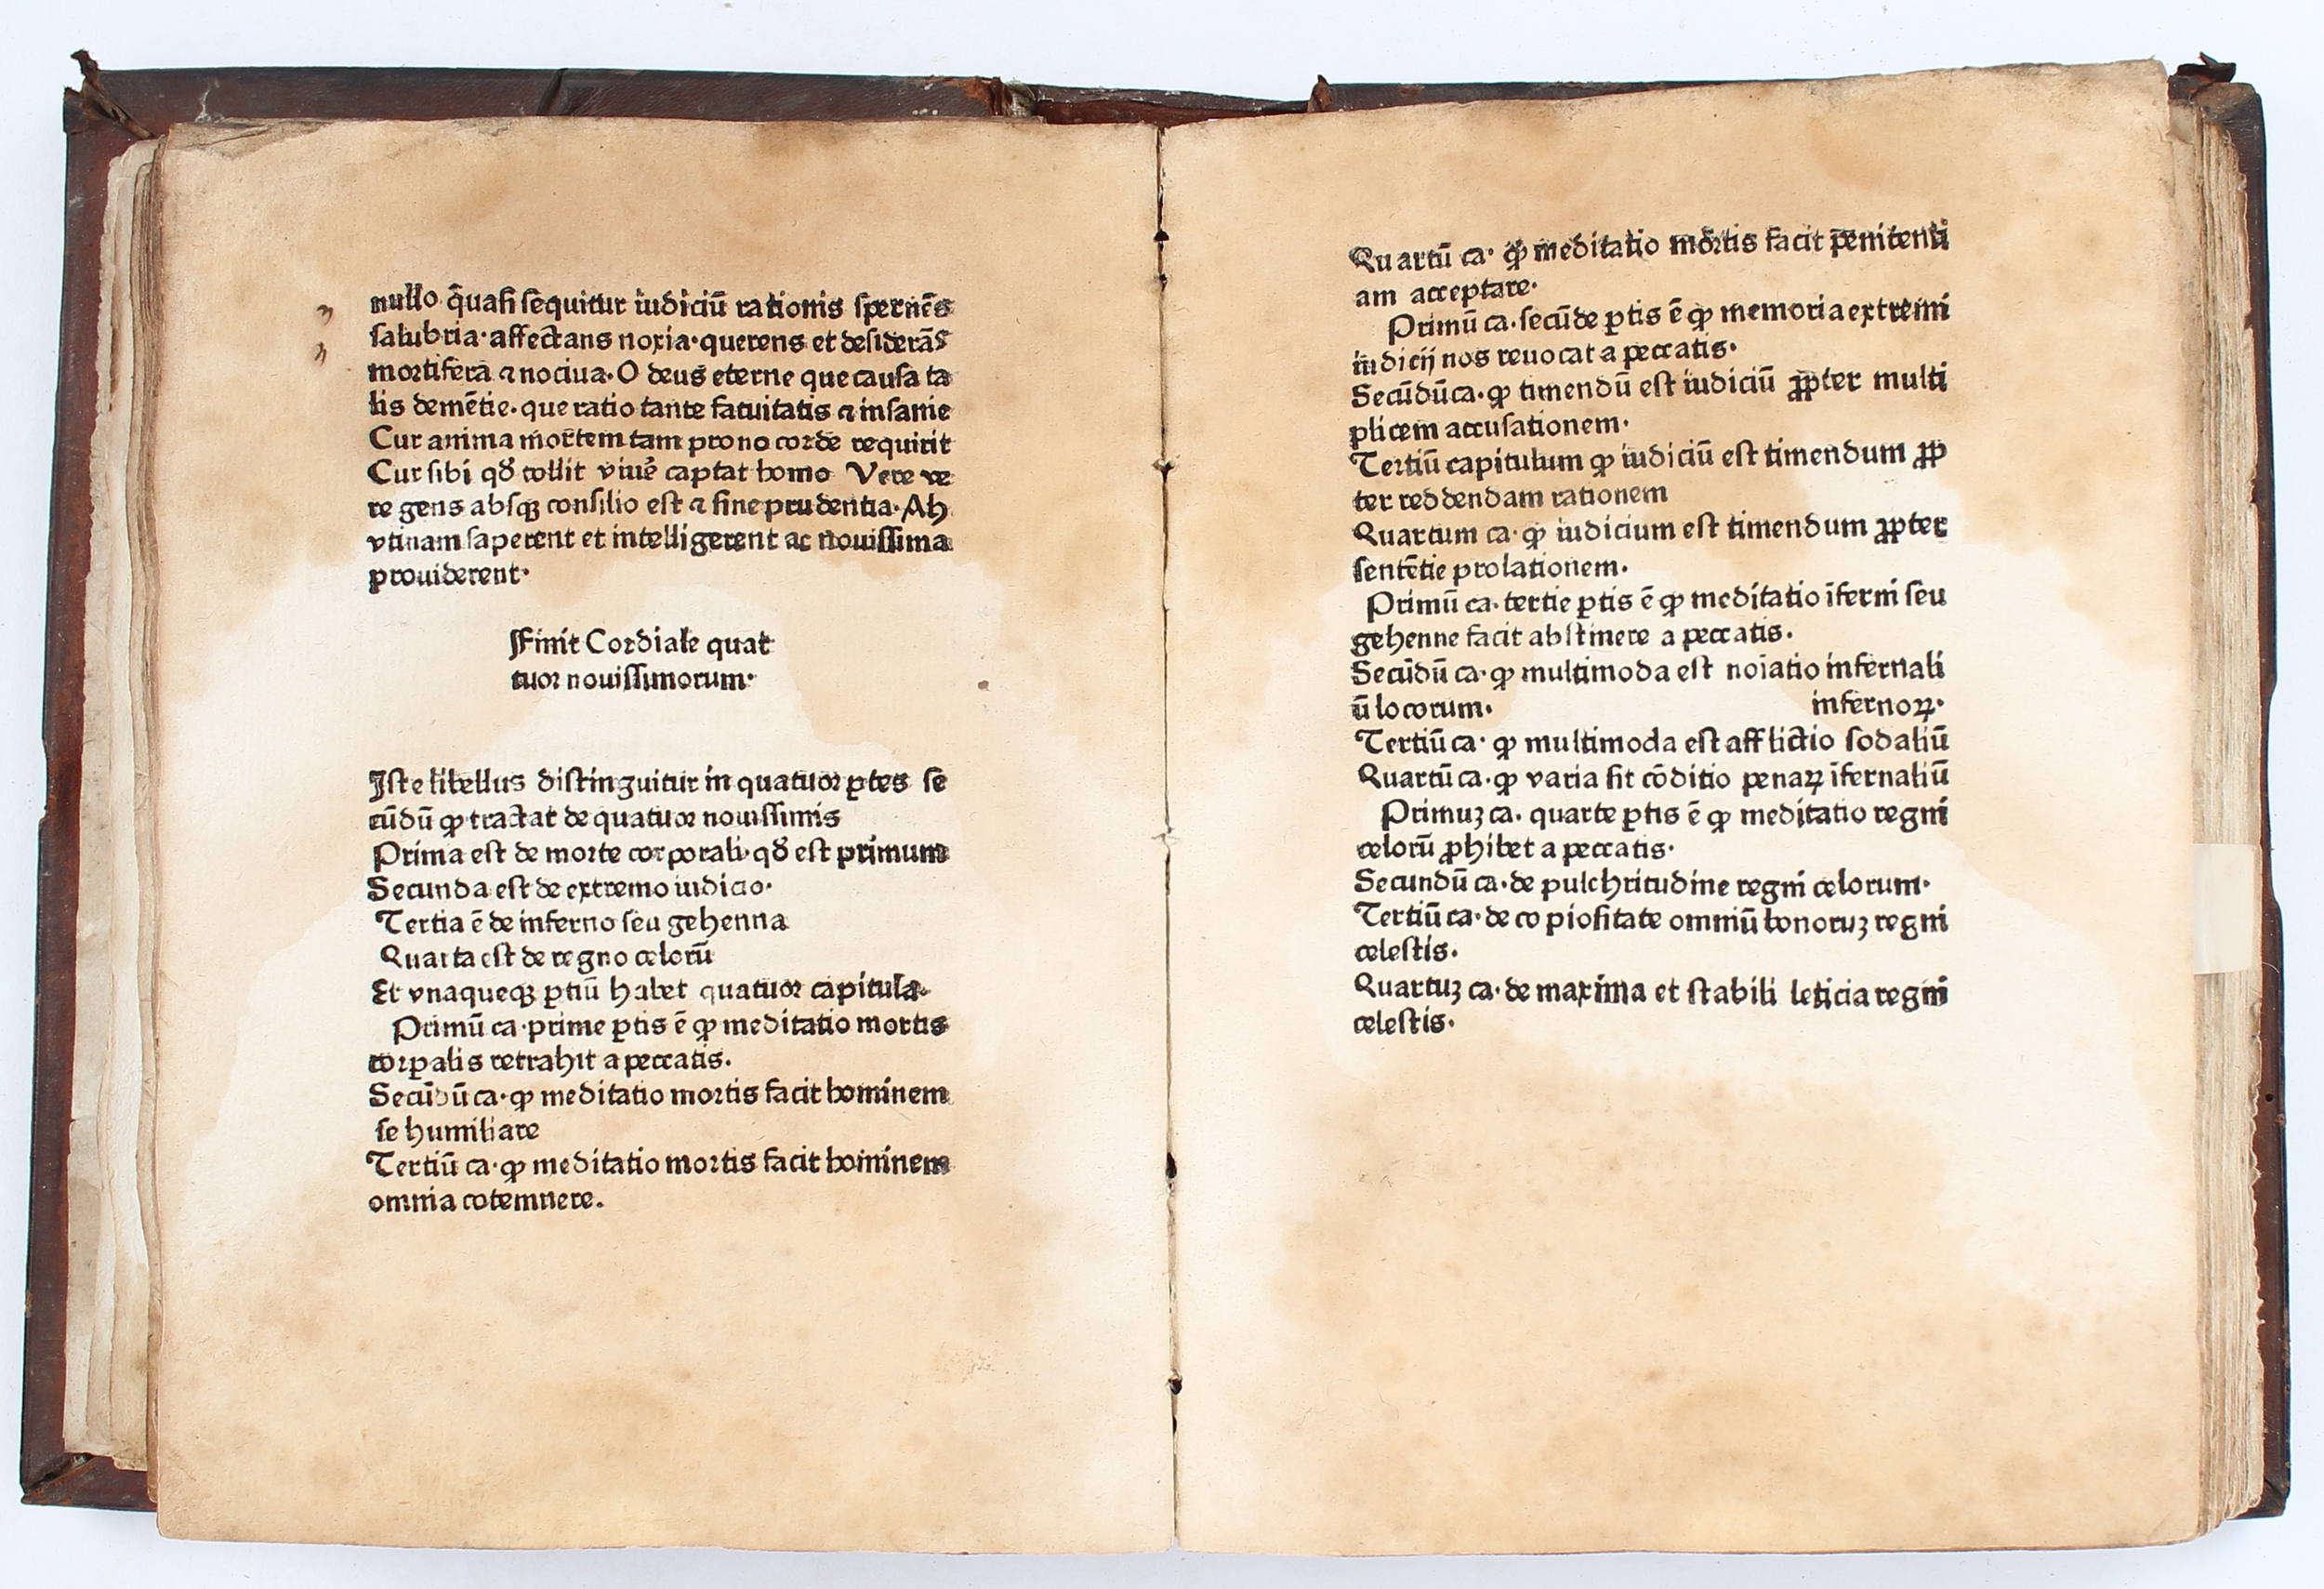 nullo q̄uasi sequitur iudiciū rationis spernēs
salubria·affectans noxia·querens et desiderās
mortifera ⁊ nociua·O deus eterne que causa ta
lis demētie·que ratio tante fatuitatis ⁊ insanie
Cur anima mortem tam prono corde requirit
Cur sibi qð tollit viuē captat homo Vere ve
re gens absqꝫ consilio est ⁊ sine prudentia·Ah
vtinam saperent et intelligerent ac nouissima
prouiderent·
Finit Cordiale quat
tuor nouissimorum·
Iste libellus distinguitur in quatuor ꝑtes se
cūdū ꝙ tractat de quatuor nouissimis
Prima est de morte corporali·qð est primum
Secunda est de extremo iudicio·
Tertia ē de inferno seu gehenna
Quarta est de regno celorū
Et vnaqueqꝫ ꝑtiū habet quatuor capitula·
Primū ca·prime ꝑtis ē ꝙ meditatio mortis
corꝑalis retrahit a peccatis.
Secūdū ca·ꝙ meditatio mortis facit hominem
se humiliare
Tertiū ca·ꝙ meditatio mortis facit hominem
omnia cotemnere.
Quartū ca· ꝙ meditatio mortis facit penitenti
am acceptare·
Primū ca·secūde ꝑtis ē ꝙ memoria extremi
iudicij nos reuocat a peccatis·
Secūdū ca·ꝙ timendū est iudiciū ꝓpter multi
plicem accusationem·
Tertiū capitulum ꝙ iudiciū est timendum ꝓp
ter reddendam rationem
Quartum ca·ꝙ iudicium est timendum ꝓpter
sentētie prolationem.
Primū ca·tertie ꝑtis ē ꝙ meditatio īferni seu
gehenne facit abstinere a peccatis.
Secūdū ca·ꝙ multimoda est noīatio infernali
ū locorum. infernoꝝ·
Tertiū ca· ꝙ multimoda est afflictio sodaliū
Quartū ca·ꝙ varia sit cōditio penaꝝ īfernaliū
Primuꝫ ca· quarte ꝑtis ē ꝙ meditatio regni
celorū ꝓhibet a peccatis·
Secundū ca·de pulchritudine regni celorum·
Tertiū ca·de copiositate omniū bonoruꝫ regni
celestis.
Quartuꝫ ca·de maxima et stabili leticia regni
celestis.